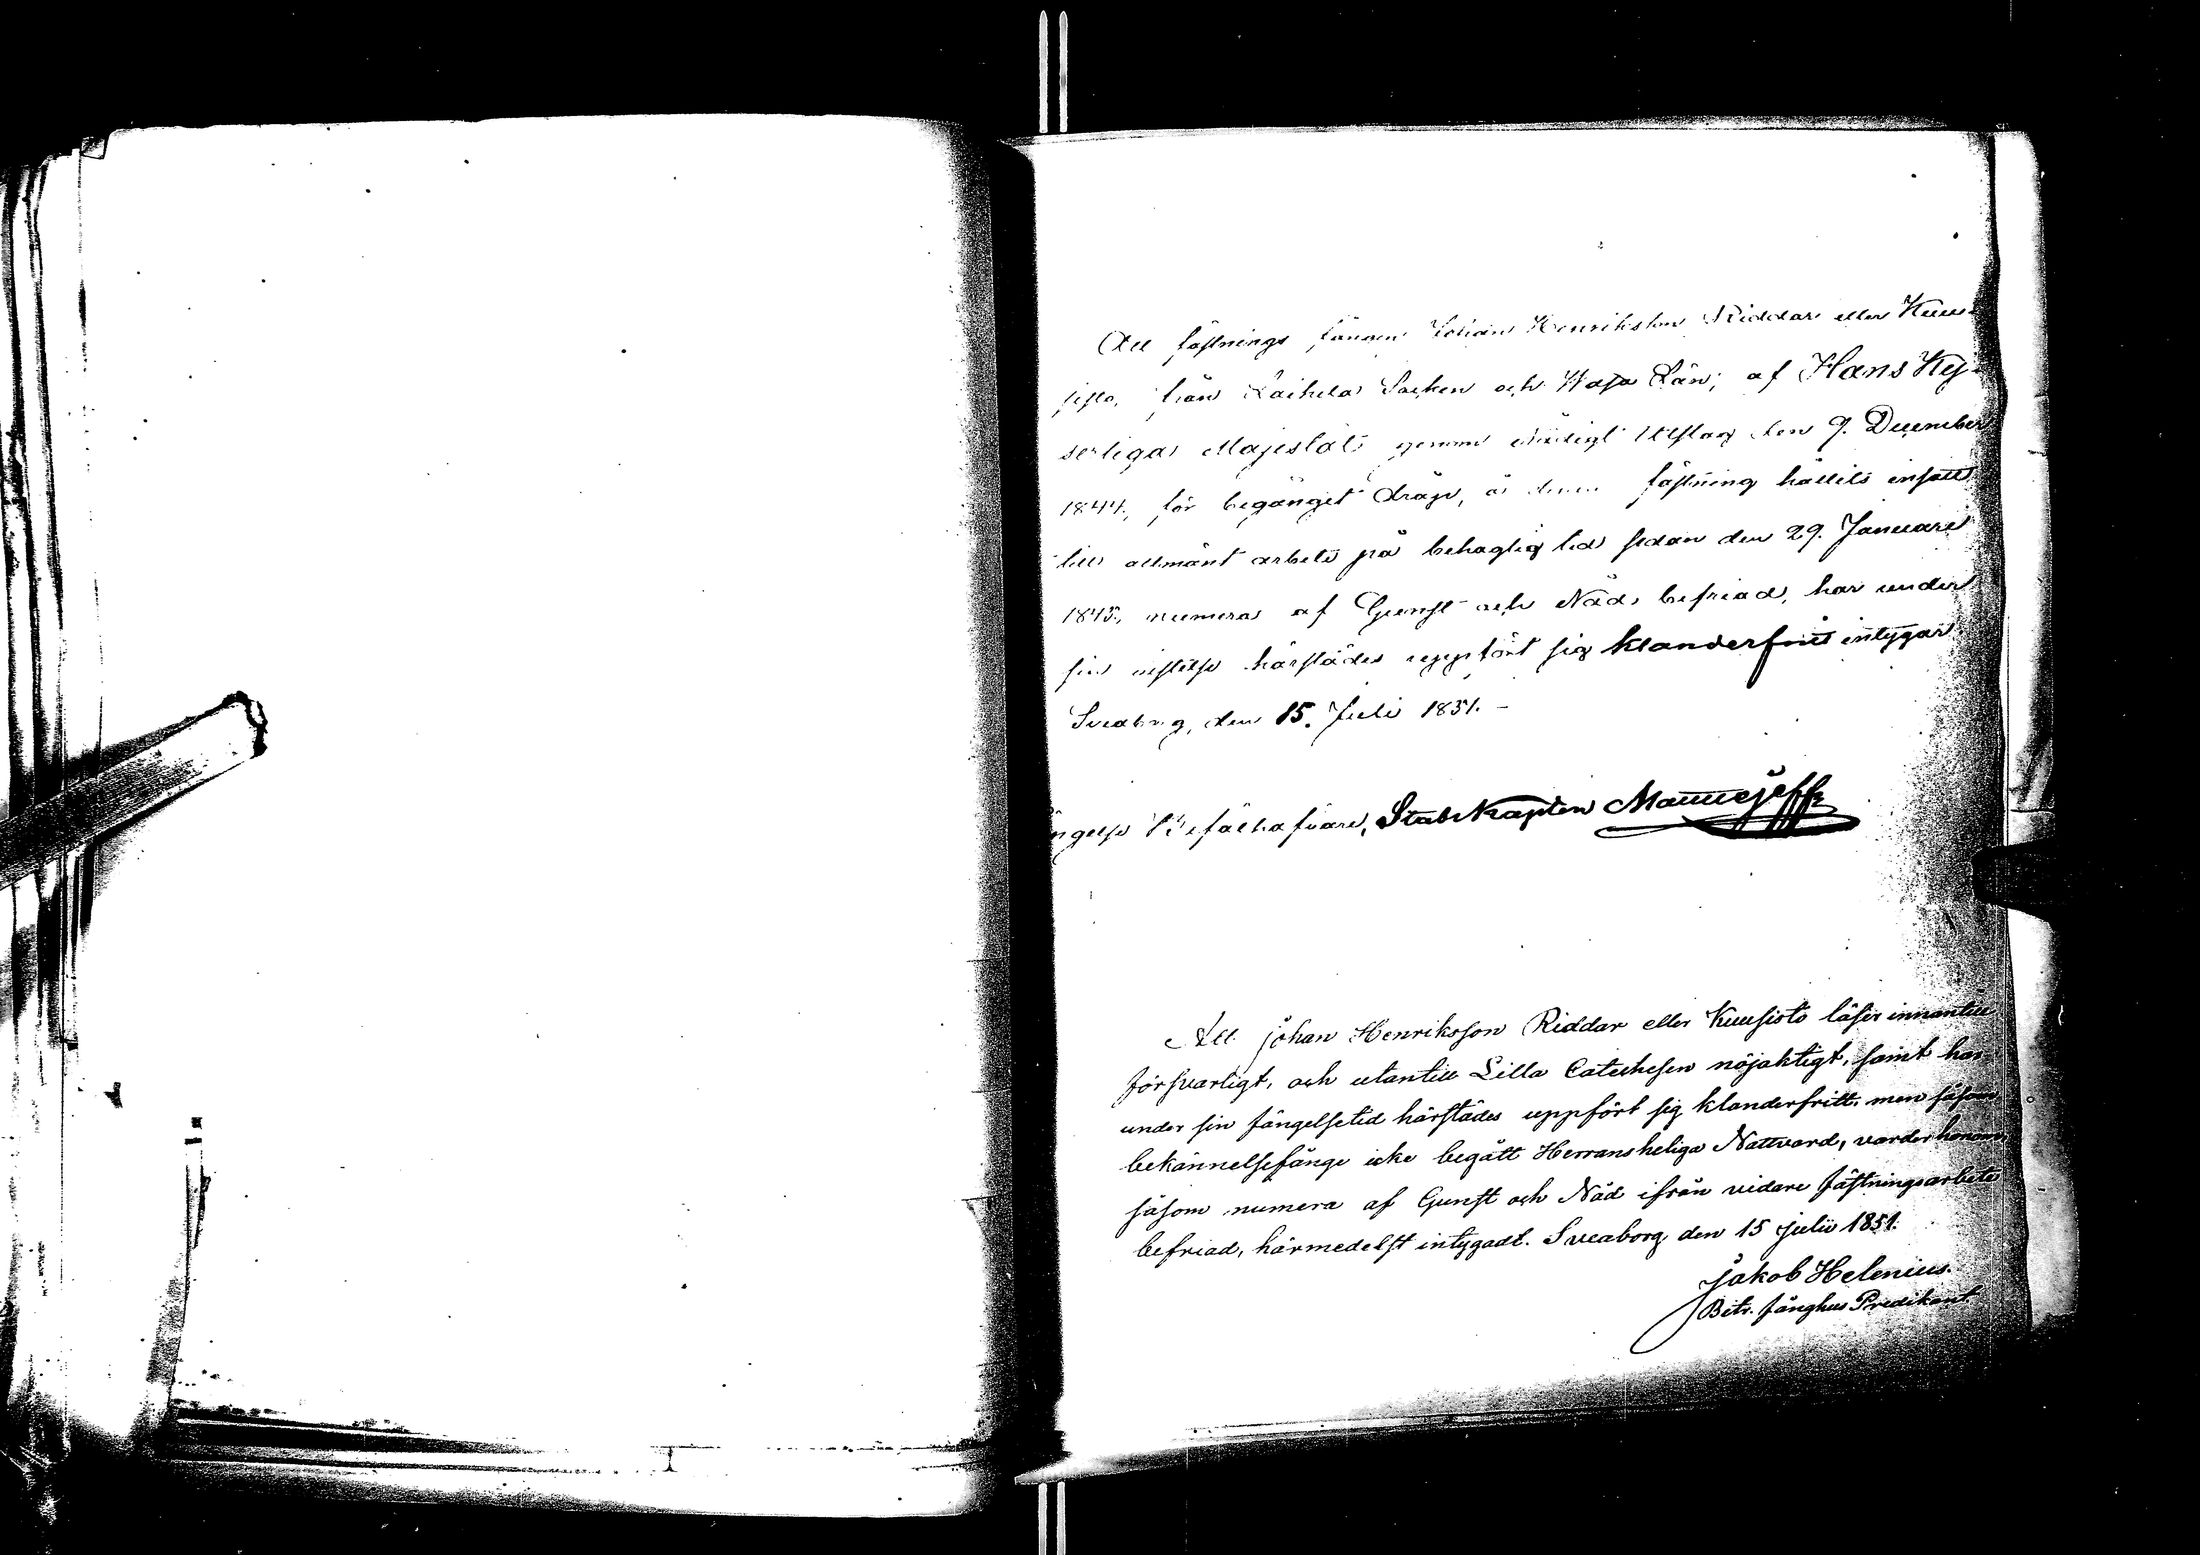 Att fästnings fången Johan Henriksson Riddar eller Kuu-
sisto, från Laihela Socken och Wasa Län, af Hans Kej-
serliga Majestät genom nådigt Utslag den 9. December
1844, för begånget dråp, å denna fästning hållits insatt
till allmänt arbete på behaglig tid sedan den 29. Januarii
1845, numera af Gunst och Nåd befriad, har under
sin vistelse härstädes uppfört sig klanderfritt intygar.
Sveaborg, den 15. Juli 1851. –
ngelse Befälhafvare, Stabskapten
Att Johan Henriksson Riddar eller Kuusisto läser innantill
försvarligt, och utantill Lilla Catechesen nöjaktigt, samt har
under sin fängelsetid härstädes uppfört sig klanderfritt, men såsom
bekännelsefånge icke begått Herrans heliga Nattvard, varder honom,
såsom numera af Gunst och Nåd ifrån vidare fästningsarbete
befriad, härmedelst intygadt. Sveaborg den 15 Julii 1851.
Jakob Helenius.
Bitr. fänghus Predikant.